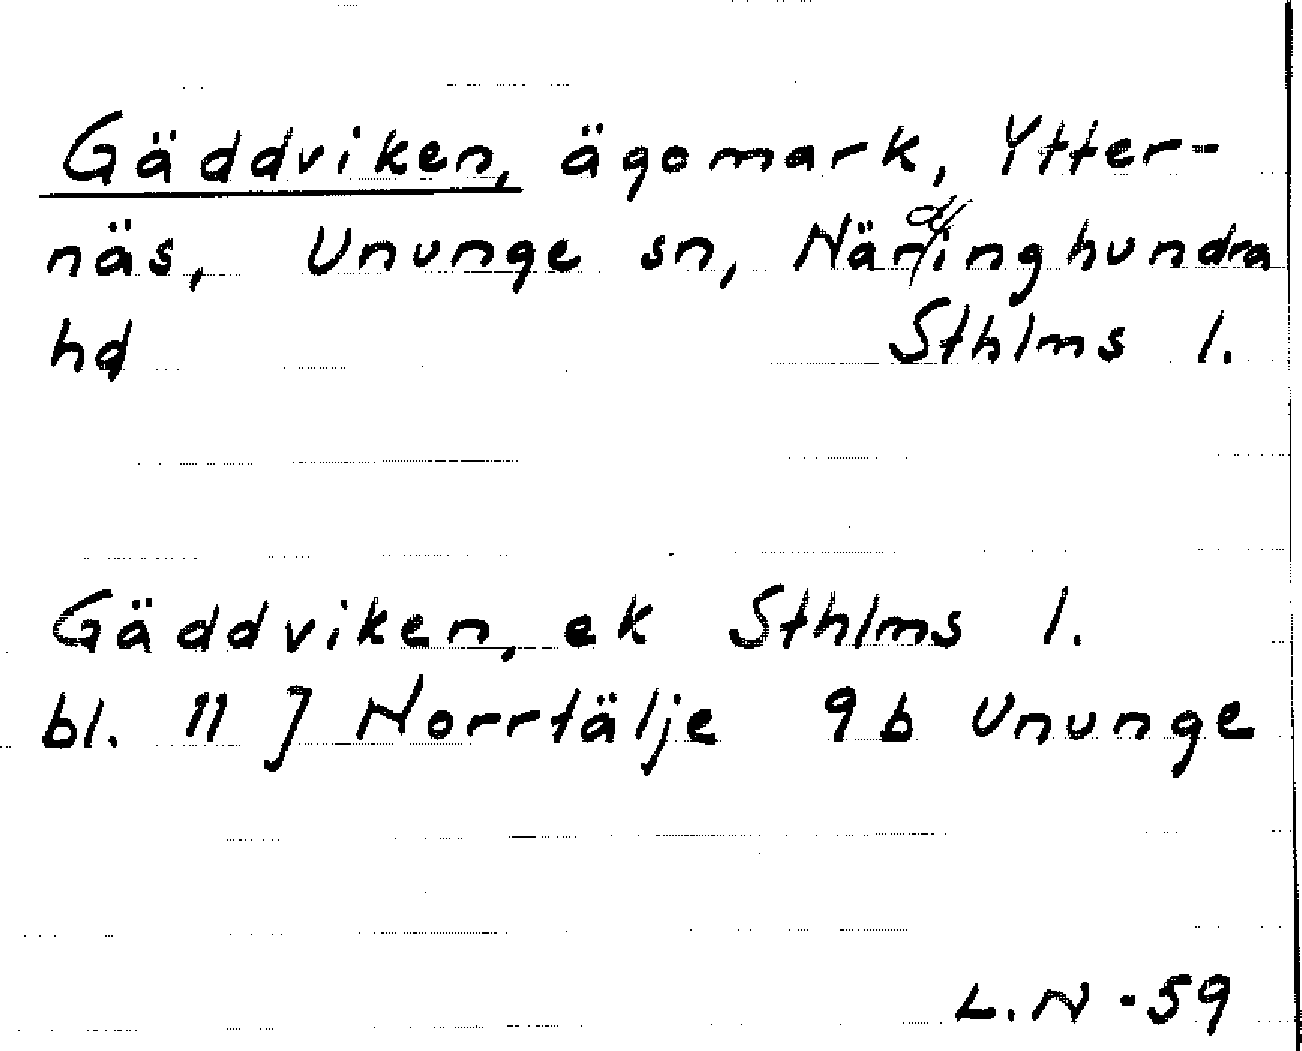 Gäddviken, ägomark, Ytter-
näs, Ununge sn, Närdinghundra
hd Sthlms l.
Gäddviken, ek Sthlms l.
bl. 11 J Norrtälje 9b Ununge
L. N - 59